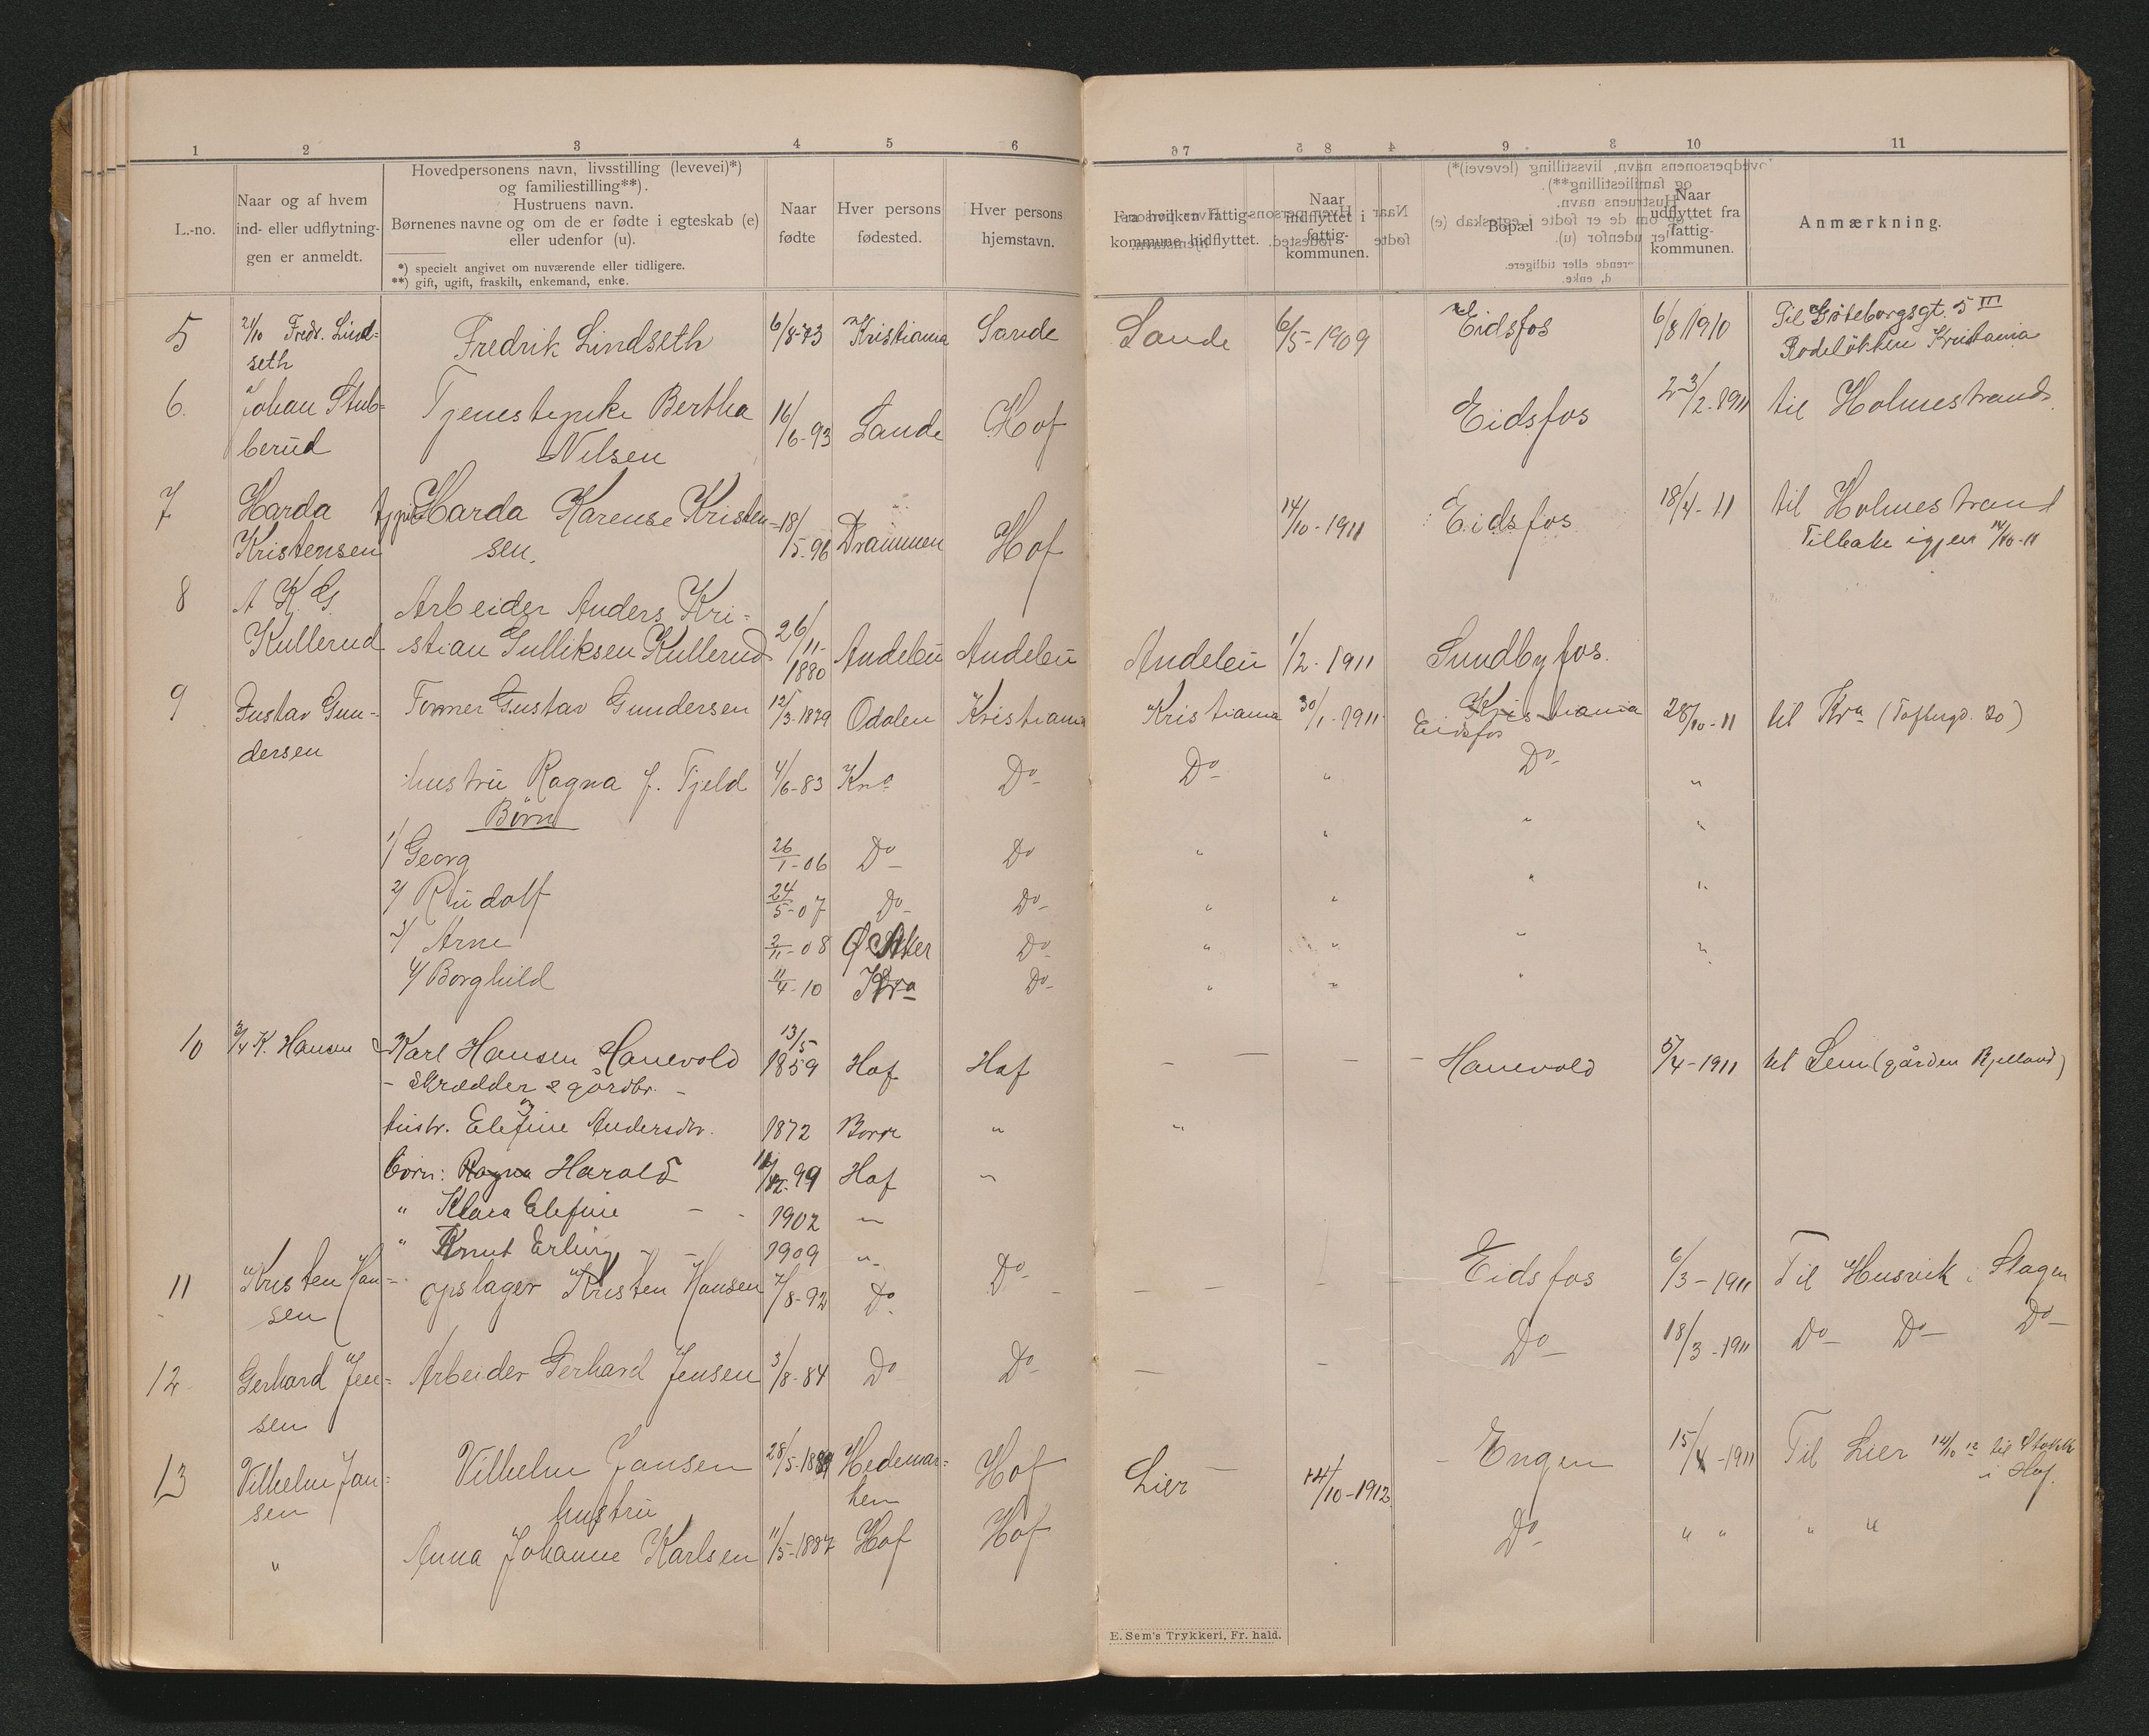 1 2 3 4 5 6
L.-no.
Naar og af hvem
ind- eller udflytnin-
gen er anmeldt.
Hovedpersonens navn, livsstilling (levevei)*)
og familiestilling**).
Hustruens navn.
Børnenes navne og om de er fødte i egteskab (e)
eller udenfor (u).
*) specielt angivet om nuværende eller tidligere.
**) gift, ugift, fraskilt, enkemand, enke.
Naar
fødte
Hver persons
fødested.
Hver persons
hjemstavn.
7 8 9 10 11
Fra hvilken fattig-
kommune hidflyttet.
Naar
indflyttet i
fattig-
kommunen.
Bopæl
Naar
udflyttet fra
fattig-
kommunen.
Anmærkning.
5 Fredr. Lind- Fredrik Lindseth 6/8-73 Kristiania Sande Sande 6/5-1909 Eidsfos 6/8 1910 Til Göteborgsgt. 5 III
seth Rodeløkken Kristiania
6. Johan Stub- Tjenestepike Bertha 16/6-93 Sande Hof Eidsfos 2/2-1911 til Holmestrand
berud Nilsen
7 Harda Harda Karense Kristen- 18/5-96 Drammen Hof 14/10-1911 Eidsfos 18/4-11 til Holmestrand
Kristensen sen. Tilbake igjen 14/10-11
8 A K G. Arbeider Anders Kri-
Kullerud stian Gulliksen Kullerud 26/11-1880 Andebu Andebu Andebu 1/2-1911 Sundbyfos.
9 Gustav Gun- Former Gustav Gundersen 12/3-1879 Odalen Kristiania Kristiania 30/1-1911 Kristiania Eidsfos 28/10-11 til Kra (Toftesgd. 20)
dersen
hustru Ragna f. Fjeld 4/6-83 Kra Do Do " Do "
Børn
1/ Georg 26/1-06 Do Do " " " "
2/ Rudolf 24/5-07 Do Do " " " "
3/ Arne 2/11-08 Ø Aker Do " " " "
4/ Borghild 11/4-10 Kra Do " " "
10 3/4 K. Hansen Karl Hansen Hanevold 13/5 1859 Hof Hof - - - - Hanevold 5/4-1911 til Sem (gården Bjelland)
- Skrædder & gårdbr. -
hustr. Elefine Andersdtr. 1872 Borre " "
børn: Ragna Harald 99 Hof "
" Klara Elefine - - 1902 "
" Knut Erling - - 1909 "
11 Kristen Han- opslager Kristen Hansen 7/8-92 Do Do - - - - Eidsfos 6/3-1911 Til Husvik i Slagen
sen
12 Gerhard Jen- Arbeider Gerhard Jensen 3/8-84 Do Do - - Do 18/3-1911 Do Do Do
sen
13 Vilhelm Jan- Vilhelm Jansen 28/5-1889 Hedemar- Hof Lier - 14/10-1912 - Engen 15/4-1911 Til Lier 14/10 12 til
sen hustru ken i Hof.
" Anna Johanne Karlsen 11/5-1887 Hof Hof Do " " " "
E. Sem's Trykkeri, Fr. hald.